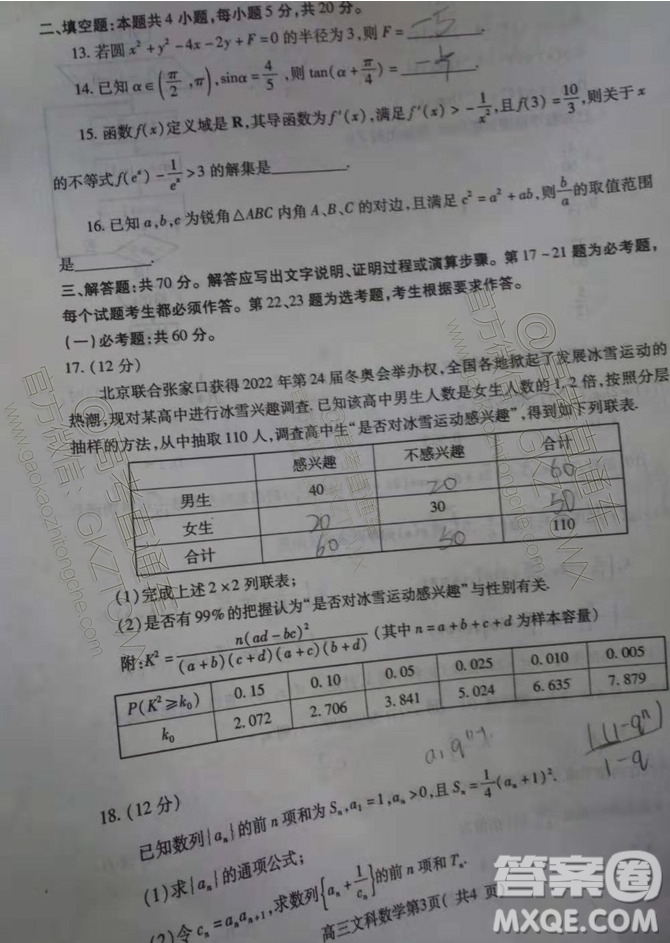 二、填空题:本题共4小题,每小题5分,共20分。
13. 若圆 x²+y²-4x-2y+F=0 的半径为3,则 F= -5 .
14. 已知 α∈(π/2,π),sinα=4/5,则 tan(α+π/4)= 
15. 函数 f(x)定义域是 R,其导函数为 f′(x),满足 f′(x)>-1/x²,且 f(3)=10/3,则关于 x
的不等式 f(eˣ)-1/eˣ>3 的解集是________.
16. 已知 a,b,c 为锐角△ABC 内角 A、B、C 的对边,且满足 c²=a²+ab,则 b/a 的取值范围
是________.
三、解答题:共70分。解答应写出文字说明、证明过程或演算步骤。第17-21题为必考题,
每个试题考生都必须作答。第22、23题为选考题,考生根据要求作答。
(一)必考题:共60分。
17. (12分)
北京联合张家口获得2022年第24届冬奥会举办权,全国各地掀起了发展冰雪运动的
热潮,现对某高中进行冰雪兴趣调查.已知该高中男生人数是女生人数的1.2倍,按照分层
抽样的方法,从中抽取110人,调查高中生“是否对冰雪运动感兴趣”,得到如下列联表.
感兴趣 不感兴趣 合计
男生 40 20 60
女生 20 30 50
合计 60 50 110
(1)完成上述2×2列联表;
(2)是否有99%的把握认为“是否对冰雪运动感兴趣”与性别有关.
附:K²=n(ad-bc)²/(a+b)(c+d)(a+c)(b+d) (其中 n=a+b+c+d 为样本容量)
P(K²≥k₀) 0.15 0.10 0.05 0.025 0.010 0.005
k₀ 2.072 2.706 3.841 5.024 6.635 7.879
a₁qⁿ⁻¹
(1-qⁿ)
1-q
18. (12分)
已知数列{aₙ}的前 n 项和为 Sₙ,a₁=1,aₙ>0,且 Sₙ=1/4(aₙ+1)².
(1)求{aₙ}的通项公式;
(2)令 cₙ=aₙaₙ₊₁,求数列{aₙ+1/cₙ}的前 n 项和 Tₙ.
高三文科数学第3页(共4页)
答案圈
MXQE.COM
官方微信:GKZTCWX
www.gaokaozhitongche.com
@高考直通车